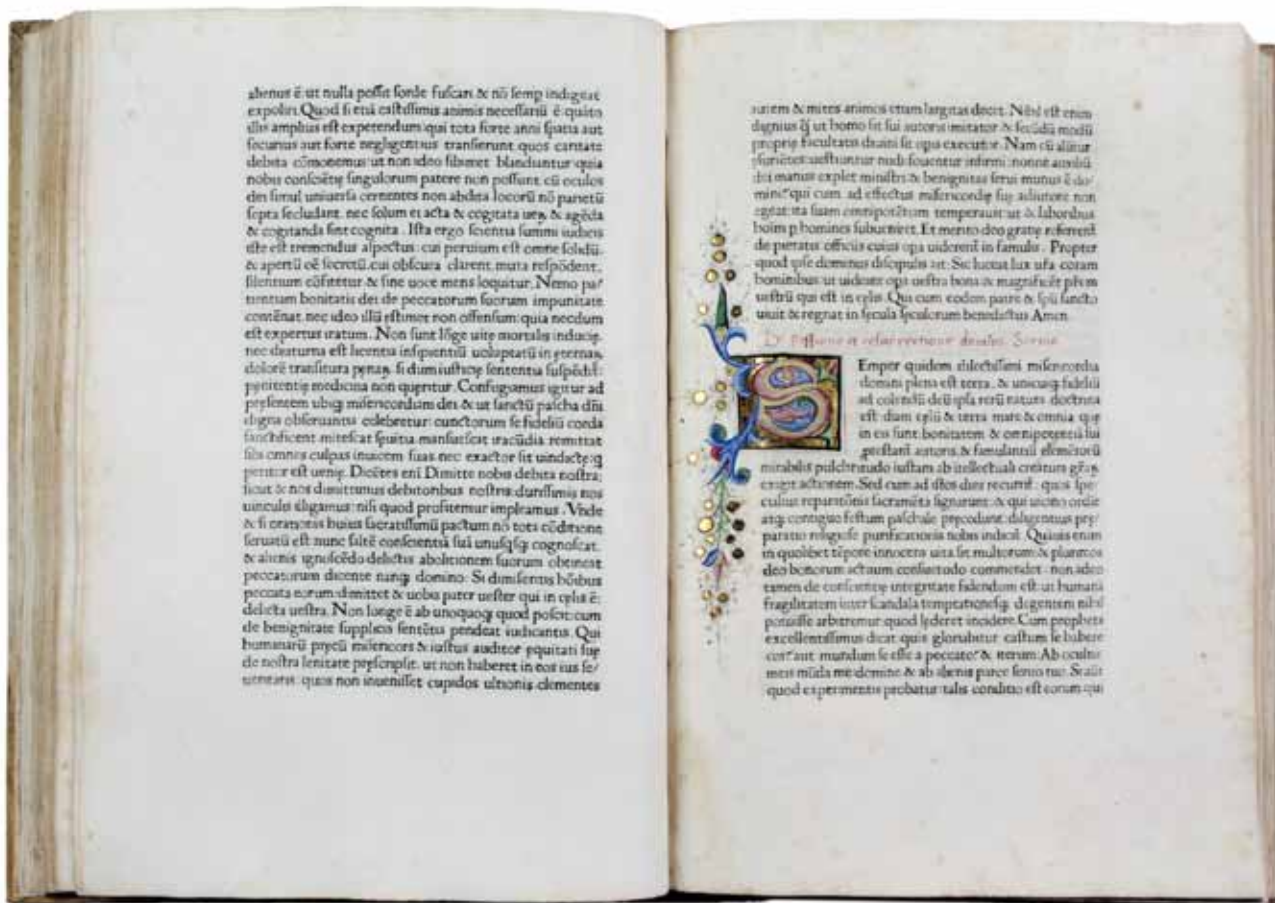 alienus ē: ut nulla possit sorde fuscari & nō semp indigeat
expoliri. Quod si etiā castissimis animis necessariū ē: quāto
illis amplius est expetendum: qui tota forte anni spatia aut
securius aut forte negligentius transierunt: quos caritate
debita cōmonemus: ut non ideo sibimet blandiantur: quia
nobis conscientię singulorum patere non possunt: cū oculos
dei simul uniuersa cernentes non abdita locorū nō parietū
septa secludant. nec solum ei acta & cogitata: ueꝝ & agēda
& cogitanda sint cognita. Ista ergo scientia summi iudicis
iste est tremendus aspectus: cui peruium est omne solidū.
& apertū oē secretū. cui obscura clarent. muta respōdent.
silentium cōfitetur & sine uoce mens loquitur. Nemo pa/
tientiam bonitatis dei de peccatorum suorum impunitate
contēnat. nec ideo illū estimet non offensum: quia necdum
est expertus iratum. Non sunt lōgę uitę mortalis indutię.
nec diuturna est licentia insipientiū uoluptatū in ęternaꝝ
dolorē transitura pęnaꝝ. si dum iustitię sententia suspēdit:
pęnitentię medicina non queritur. Confugiamus igitur ad
pręsentem ubiq; misericordiam dei & ut sanctū pascha dn̄i
digna obseruantia celebretur: cunctorum se fideliū corda
sanctificent. mitescat sęuitia: mansuescat iracūdia. remittat
sibi omnes culpas inuicem suas. nec exactor sit uindictę: q
petitor est uenię. Dicētes eni Dimitte nobis debita nostra:
sicut & nos dimittimus debitoribus nostris: durissimis nos
uinculis illigamus: nisi quod profitemur impleamus. Vnde
& si orationis huius sacratissimū pactum nō tota cōditione
seruatū est: nunc saltē conscientiā suā unusq̄sq; cognoscat.
& alienis ignoscēdo delictis abolitionem suorum obtineat
peccatorum dicente nanq; domino: Si dimiseritis hoībus
peccata eorum: dimittet & uobis pater uester qui in cęlis ē:
delicta uestra. Non longe ē ab unoquoq; quod poscit: cum
de benignitate supplicis sentētia pendeat iudicantis. Qui
humanarū pręcū misericors & iustus auditor equitati suę
de nostra lenitate pręscripsit. ut non haberet in eos ius se/
ueritatis: quos non inuenisset cupidos ultionis. clementes
autem & mites animos etiam largitas decet. Nihil est enim
dignius q̄ ut homo sit sui autoris imitator & secūdū modū
proprię facultatis diuini sit opis executor. Nam cū aluntur
esuriētes: uestiuntur nudi: fouentur infirmi: nonne auxiliū
dei manus explet ministri: & benignitas serui munus ē do/
mini: qui cum ad effectus misericordię suę adiutore non
egeat: ita suam omnipotētiam temperauit: ut & laboribus
hoim p homines subueniret. Et merito deo gratię referent̄
de pietatis officiis cuius opa uiderent̄ in famulis. Propter
quod ipse dominus discipulis ait: Sic luceat lux ur̄a coram
hominibus: ut uideant opa uestra bona & magnificēt pr̄em
uestrū qui est in cęlis. Qui cum eodem patre & spū sancto
uiuit & regnat in sęcula sęculorum benedictus Amen
De passione et resurrectione dn̄i Sermo
SEmper quidem dilectissimi misericordia
domini plena est terra. & unicuiq; fideliū
ad colendū deū ipsa rerū natura doctrina
est: dum cęlū & terra mare & omnia quę
in eis sunt: bonitatem & omnipotentiā sui
pręstant autoris. & famulantiū elemētorū
mirabilis pulchritudo iustam ab itellectuali creatura gr̄aꝝ
exigit actionem. Sed cum ad istos dies recurrit: quos spe/
cialius reparatiōis sacramēta signarunt. & qui uicino ordie
atq; contiguo festum paschale pręcedunt: diligentius prę/
paratio religiosę purificationis nobis indicit̄. Quāuis enim
in quolibet tēpore innocens uita sit multorum & plurimos
deo bonorum actuum consuetudo commendet: non adeo
tamen de conscientię integritate fidendum est: ut humanā
fragilitatem inter scandala temptationesq; degentem nihil
potuisse arbitremur quod lęderet incidere. Cum propheta
excellentissimus dicat: quis gloriabitur castum se habere
cor: aut mundum se esse a peccato: & iterum: Ab ocultis
meis mūda me domine & ab alienis parce seruo tuo. Si aūt
quod experimentis probatur: talis conditio est eorum qui